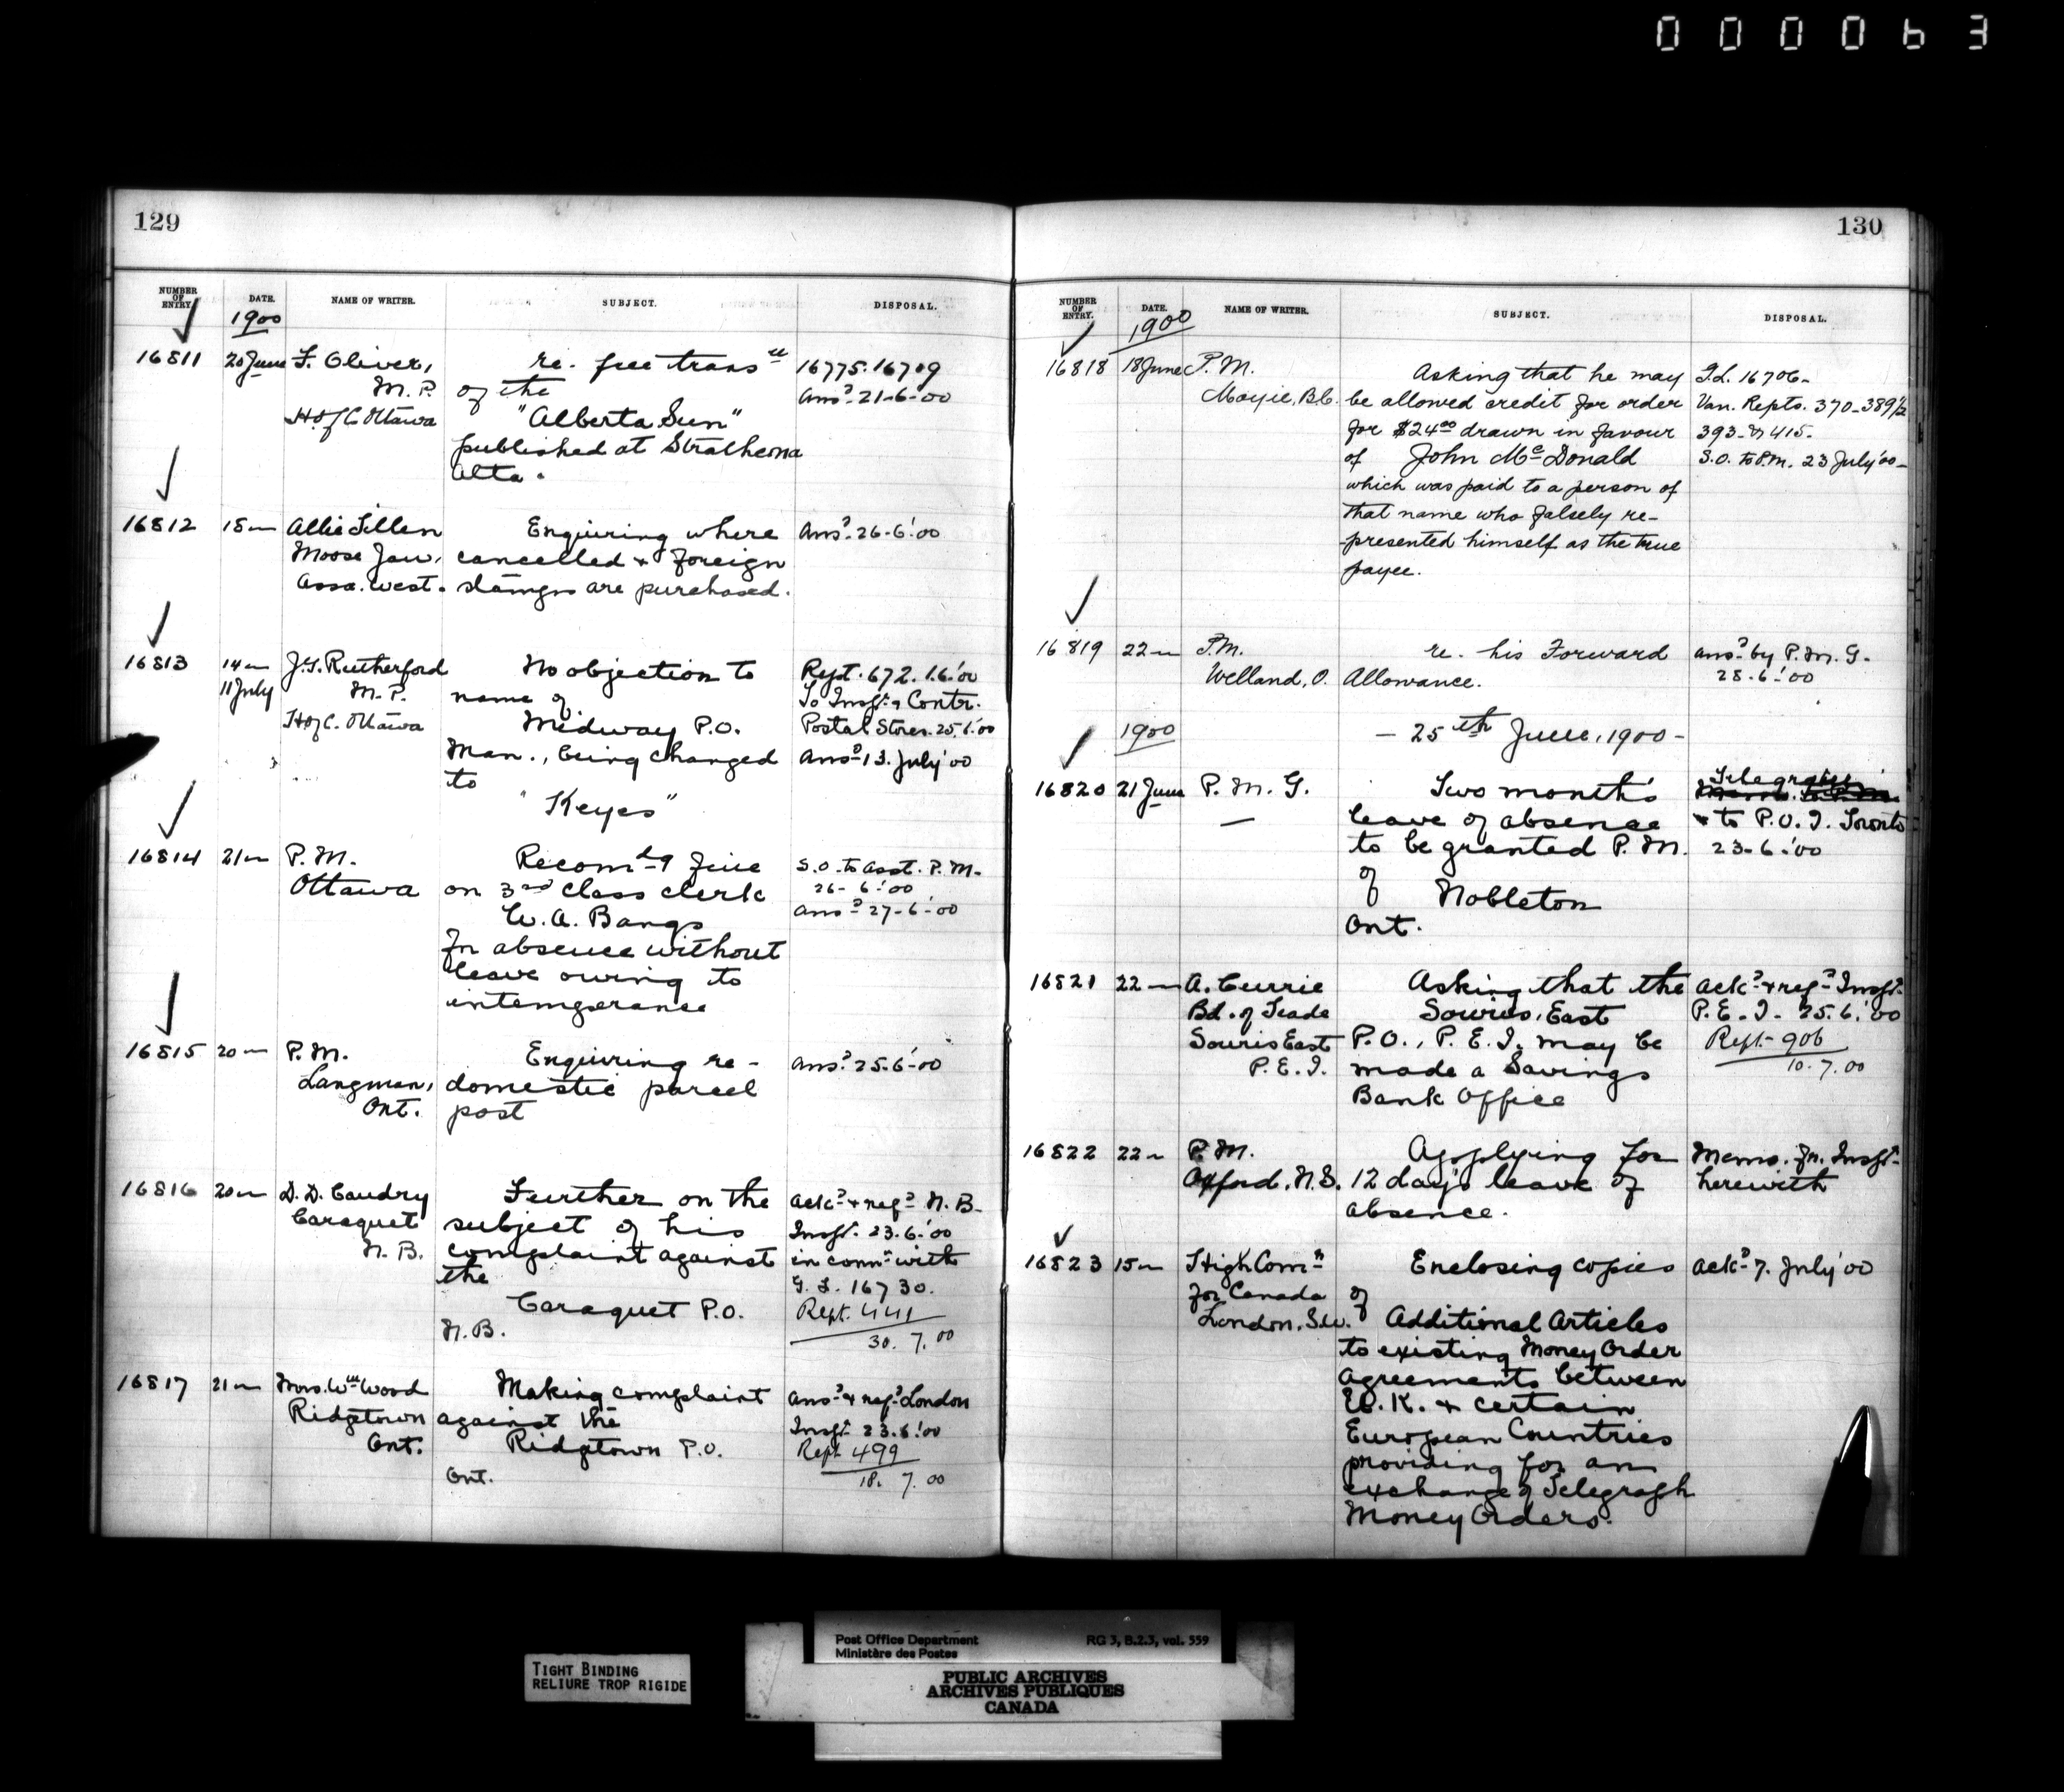 000063
129
NUMBER OF ENTRY.
DATE.
NAME OF WRITER.
SUBJECT.
DISPOSAL.
1900
16811 20 June F. Oliver, re. free transn 16775.16709
M. P. of the Ansd 21-6-'00
H. of C. Ottawa "Alberta Sun"
published at Strathcona
Alta.
16812 18 " Allie Enquiring where Ansd 26-6-'00
Moose Jaw, cancelled & foreign
Assa. West. stamps are purchased.
16813 14 " J. G. Rutherford No objection to Rept. 672. 1.6.'00
11 July M. P. name of To Inspr. & Contr.
H of C. Ottawa Midway P.O. Postal Stores. 25.6.'00
Man., being changed Ansd 13. July '00
to
"Keyes"
16814 21 " P. M. Recomdg fine S.O. to Asst. P. M.
Ottawa on 3rd class clerk 26-6-'00
W. A. Bangs Ansd 27-6-'00
for absence without
leave owing to
intemperance
16815 20 " P. M. Enquiring re - Ansd 25-6-'00
Langman, domestic parcel
Ont. post
16816 20 " D. D. Landry Further on the Ackd & refd N. B.
Caraquet subject of his Inspr. 23.6.'00
N. B. complaint against in connn with
the G. L. 16730.
Caraquet P.O. Rept. 441
N. B. 30. 7. 00
16817 21 " Mrs. Wm Wood Making complaint Ansd & refd London
Ridgetown against the Inspr 23.6.'00
Ont. Ridgetown P.O. Rept 499
Ont. 18. 7. 00
130
NUMBER OF ENTRY.
DATE.
NAME OF WRITER.
SUBJECT.
DISPOSAL.
1900
16818 18 June P. M. Asking that he may G.L. 16706-
Moyie, B.C. be allowed credit for order Van. Repts. 370-389½
for $24.00 drawn in favour 393 & 415.
of John McDonald S.O. to P.M. 23 July '00-
which was paid to a person of
that name who falsely re-
-presented himself as the true
payee.
16819 22 " P.M. re. his Forward Ansd by P. M. G.
Welland, O. Allowance. 28.6.'00
1900 - 25th June, 1900 -
16820 21 June P. M. G. Two months Telegram
- leave of absence to P.O. I. Toronto
to be granted P. M. 23-6-'00
of Nobleton
Ont.
16821 22 " A. Currie Asking that the Ackd & refd Inspr.
Bd. of Trade Souris, East P. E. I. 25.6.'00
Souris East P.O., P. E. I. may be Rept- 906
P. E. I. made a Savings 10. 7. 00
Bank Office
16822 22 " P. M. Applying for Memo. fr. Inspr.
Oxford, N.S. 12 days leave of herewith
absence.
16823 15 " High Comr Enclosing copies Ackd 7. July '00
for Canada of
London, S.W. Additional Articles
to existing Money Order
Agreements between
U. K. & certain
European Countries
providing for an
exchange of Telegraph
Money Orders.
TIGHT BINDING
RELIURE TROP RIGIDE
Post Office Department RG 3, B.2.3, vol. 559
Ministère des Postes
PUBLIC ARCHIVES
ARCHIVES PUBLIQUES
CANADA